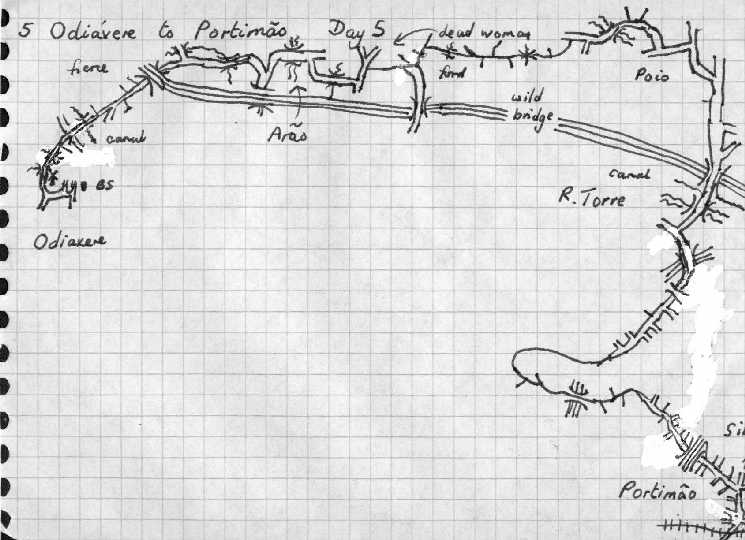 5 Odiáxere to Portimão Day 5
dead woman
Poio
wild
bridge
canal
Arão
canal
R. Torre
BS
Odiaxere
Sil
Portimão